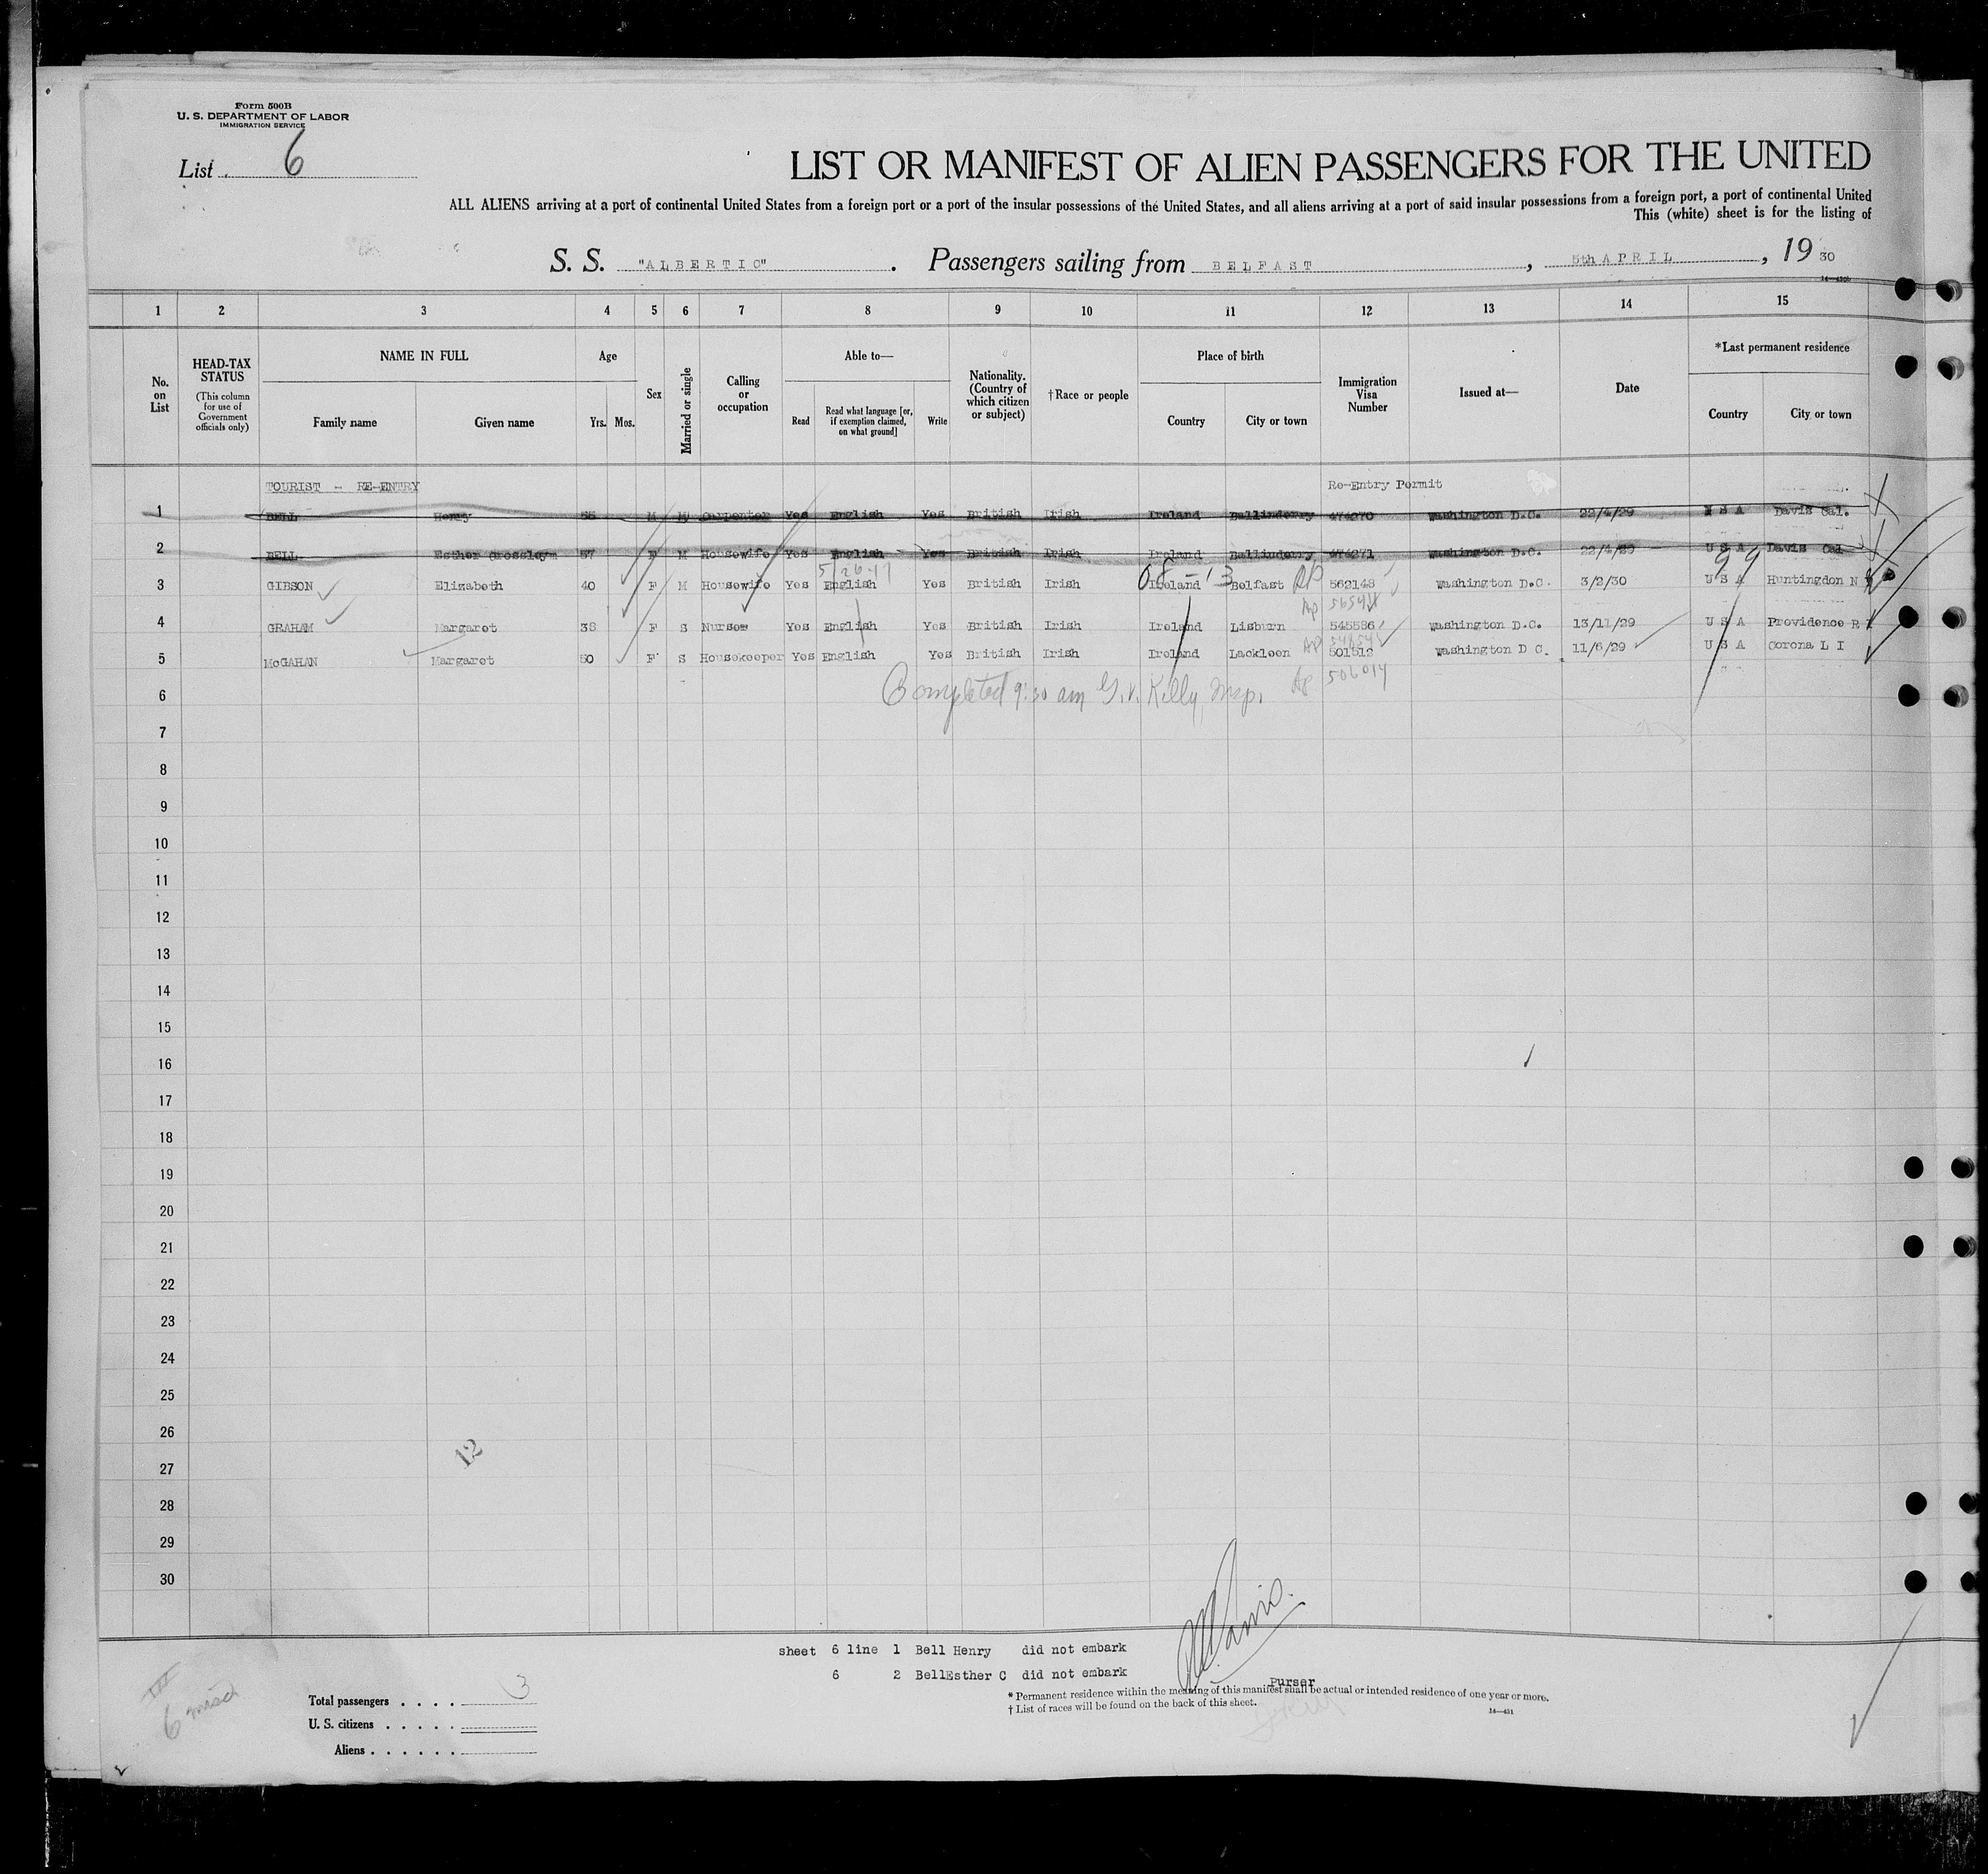 Form 500B
U. S. DEPARTMENT OF LABOR
IMMIGRATION SERVICE
List 6
LIST OR MANIFEST OF ALIEN PASSENGERS FOR THE UNITED
ALL ALIENS arriving at a port of continental United States from a foreign port or a port of the insular possessions of the United States, and all aliens arriving at a port of said insular possessions from a foreign port, a port of continental United
This (white) sheet is for the listing of
S. S. "ALBERTIC". Passengers sailing from BELFAST, 5th APRIL, 19 30
1 2 3 4 5 6 7 8 9 10 11 12 13 14 15
No. on List HEAD-TAX STATUS (This column for use of Government officials only) NAME IN FULL Family name Given name Age Yrs. Mos. Sex Married or single Calling or occupation Able to— Read Read what language [or, if exemption claimed, on what ground] Write Nationality. (Country of which citizen or subject) †Race or people Place of birth Country City or town Immigration Visa Number Issued at— Date *Last permanent residence Country City or town
TOURIST - RE-ENTRY Re-Entry Permit
1 BELL Henry 55 M M Carpenter Yes English Yes British Irish Ireland Ballinderry 474270 Washington D.C. 22/4/29 U S A Davis Cal.
2 BELL Esther Crossleym 57 F M Housewife Yes English Yes British Irish Ireland Ballinderry 474271 Washington D.C. 22/4/29 U S A Davis Cal
3 GIBSON Elizabeth 40 F M Housewife Yes English Yes British Irish Ireland Belfast 562148 Washington D.C. 3/2/30 U S A Huntingdon N
4 GRAHAM Margaret 38 F S Nurse Yes English Yes British Irish Ireland Lisburn 545586 Washington D.C. 13/11/29 U S A Providence R I
5 McGAHAN Margaret 50 F S Housekeeper Yes English Yes British Irish Ireland Lackleen 501512 Washington D C. 11/6/29 U S A Corona L I
506014
6 Completed 9:30 am G.V. Kelly, Insp.
7
8
9
10
11
12
13
14
15
16
17
18
19
20
21
22
23
24
25
26
12
27
28
29
30
sheet 6 line 1 Bell Henry did not embark
6 2 BellEsther C did not embark
Purser
Total passengers . . . . 3
U. S. citizens . . . . .
Aliens . . . . . .
* Permanent residence within the meaning of this manifest shall be actual or intended residence of one year or more.
† List of races will be found on the back of this sheet.
14—431